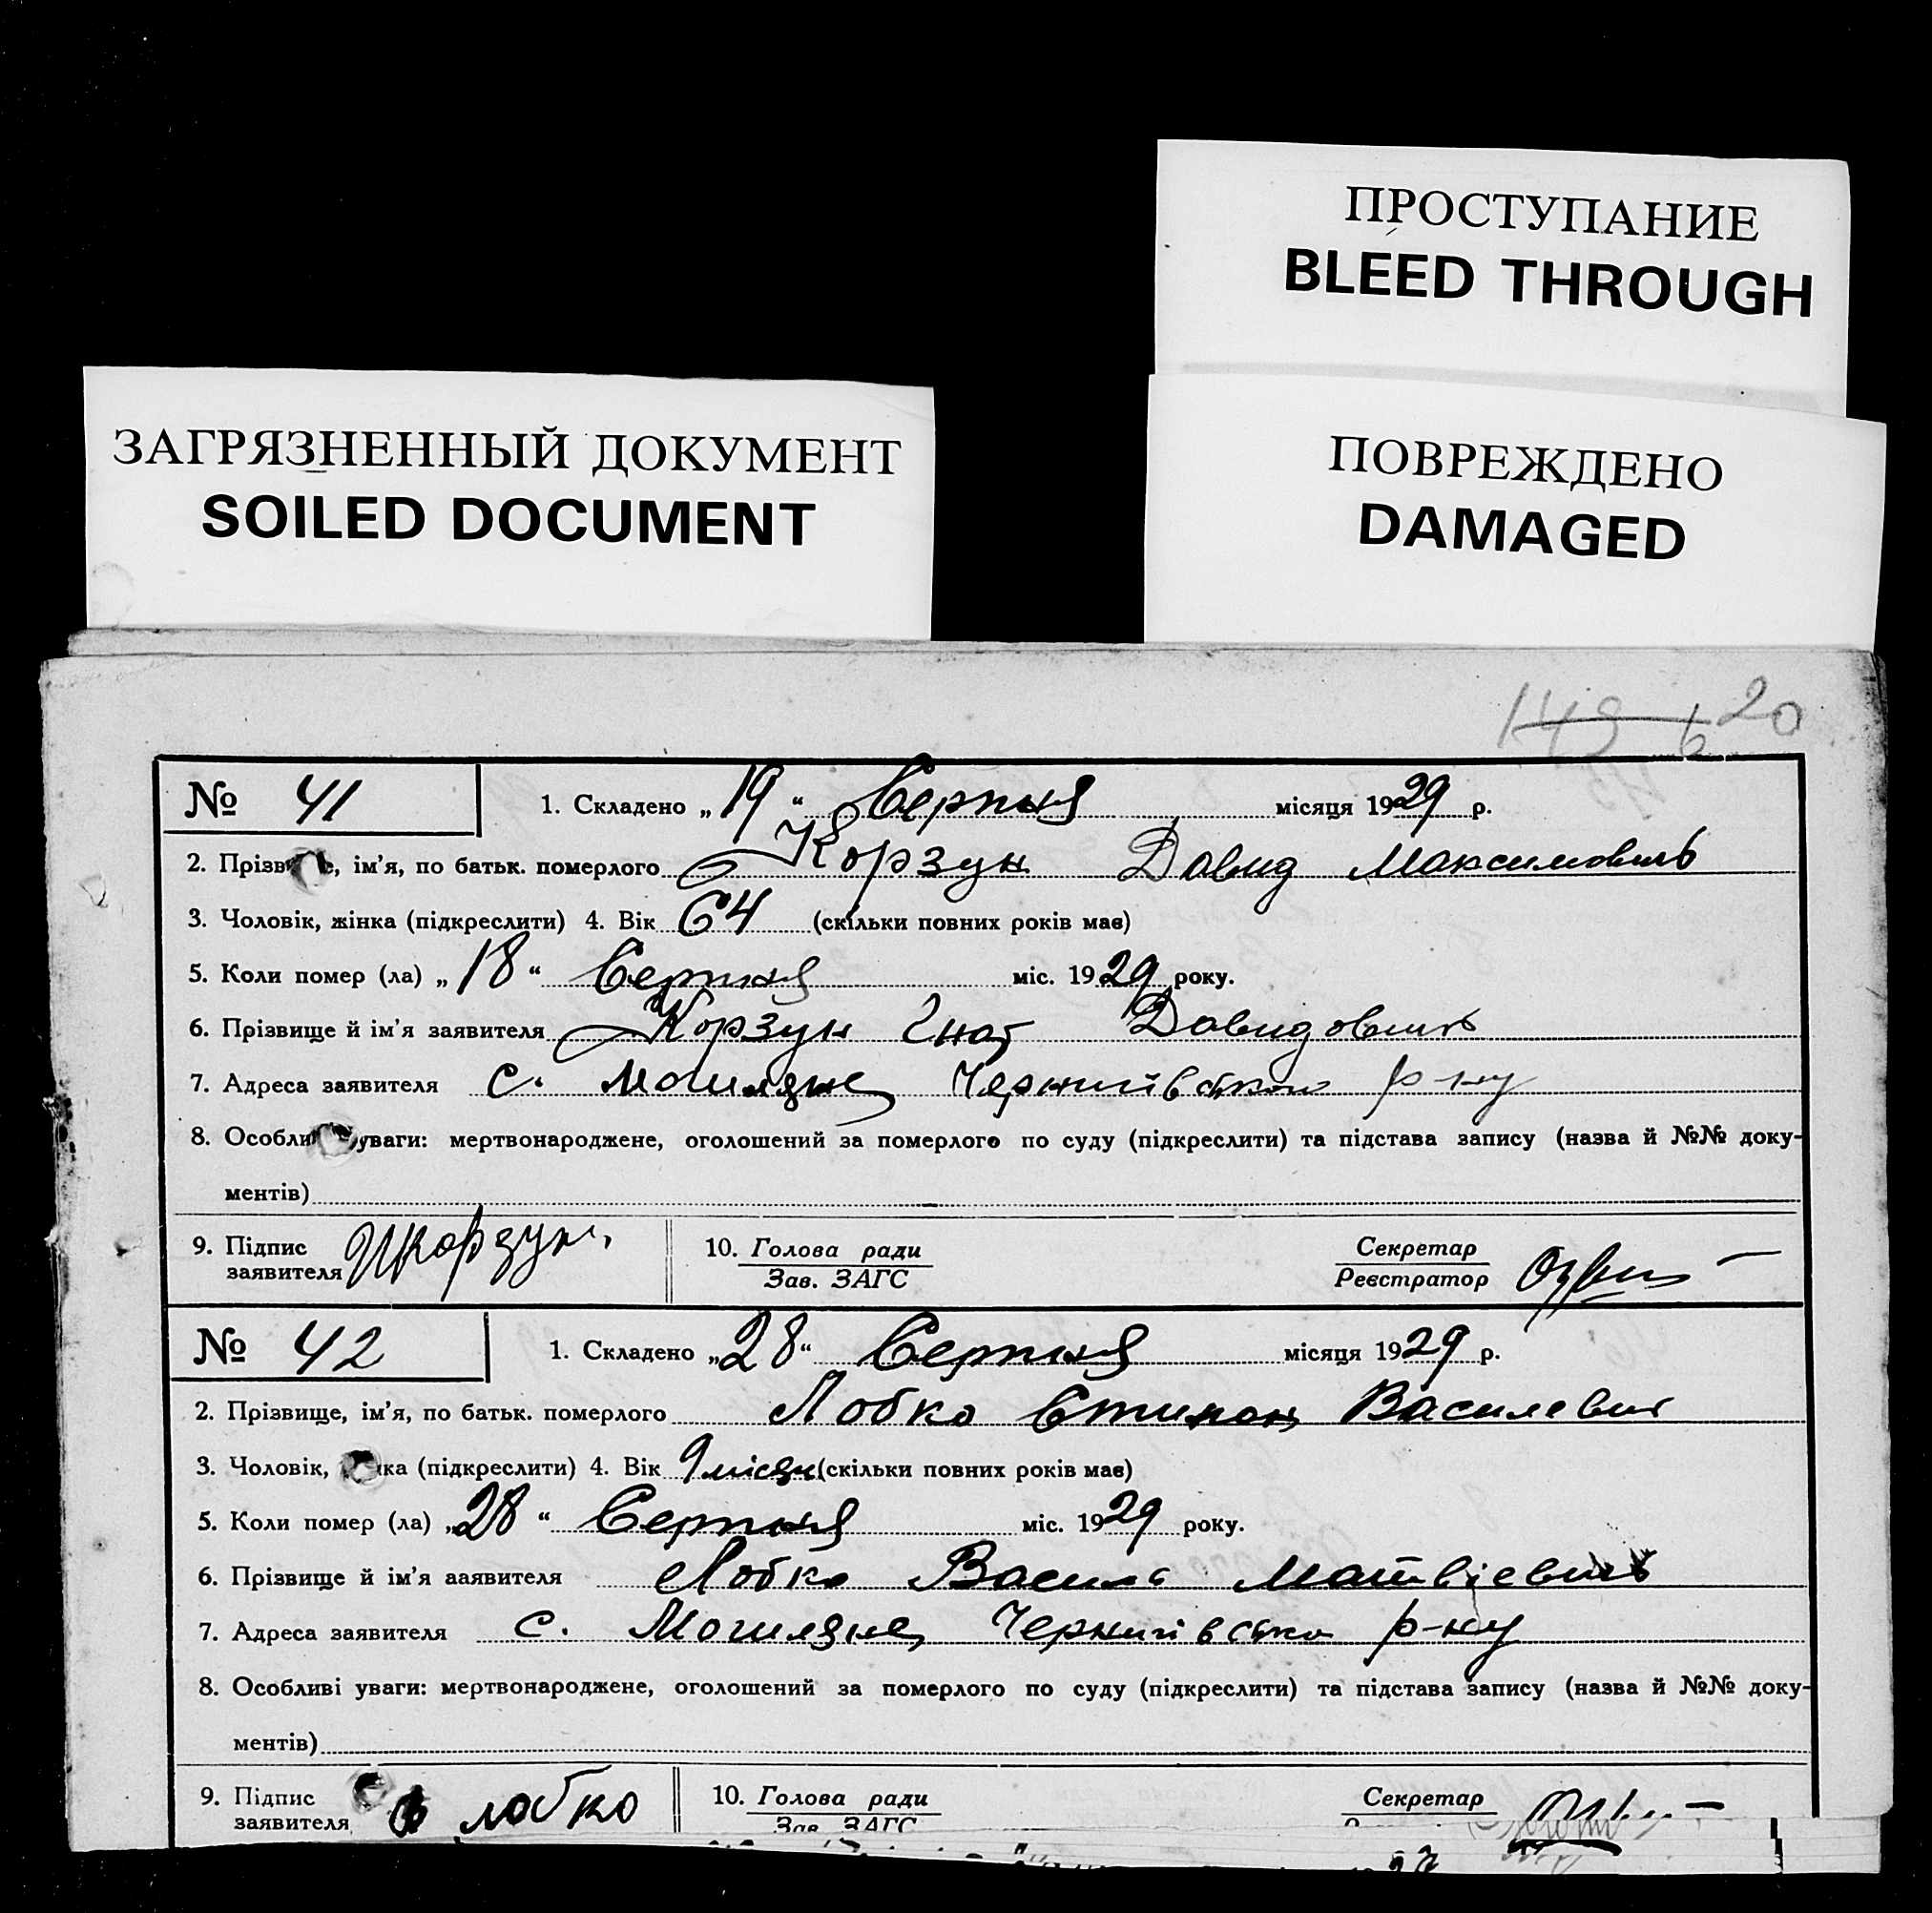 ПРОСТУПАНИЕ
BLEED THROUGH
ЗАГРЯЗНЕННЫЙ ДОКУМЕНТ
SOILED DOCUMENT
ПОВРЕЖДЕНО
DAMAGED
149 20
№ 41 1. Складено „19“ Серпня місяця 1929 р.
2. Прізв е, ім’я, по батьк. померлого Корзун Давид Максимович
3. Чоловік, жінка (підкреслити) 4. Вік 64 (скільки повних років має)
5. Коли помер (ла) „18“ Серпня міс. 1929 року.
6. Прізвище й ім’я заявителя Корзун Гнат Давидович
7. Адреса заявителя с. Могиляне Чернигівського р-ну
8. Особли уваги: мертвонароджене, оголошений за померлого по суду (підкреслити) та підстава запису (назва й №№ доку-
ментів)
9. Підпис заявителя Корзун 10. Голова ради Зав. ЗАГС Секретар Реєстратор
№ 42 1. Складено „28“ Серпня місяця 1929 р.
2. Прізвище, ім’я, по батьк. померлого Лобко Василевич
3. Чоловік, ка (підкреслити) 4. Вік 9 місяц (скільки повних років має)
5. Коли помер (ла) „28“ Серпня міс. 1929 року.
6. Прізвище й ім’яааявителя Лобко Василь Матвієвич
7. Адреса заявителя с. Могиляне Чернигівсько р-ну
8. Особливі уваги: мертвонароджене, оголошений за померлого по суду (підкреслити) та підстава запису (назва й №№ доку-
ментів)
9. Підпис заявителя лобко 10. Голова ради Зав. ЗАГС Секретар